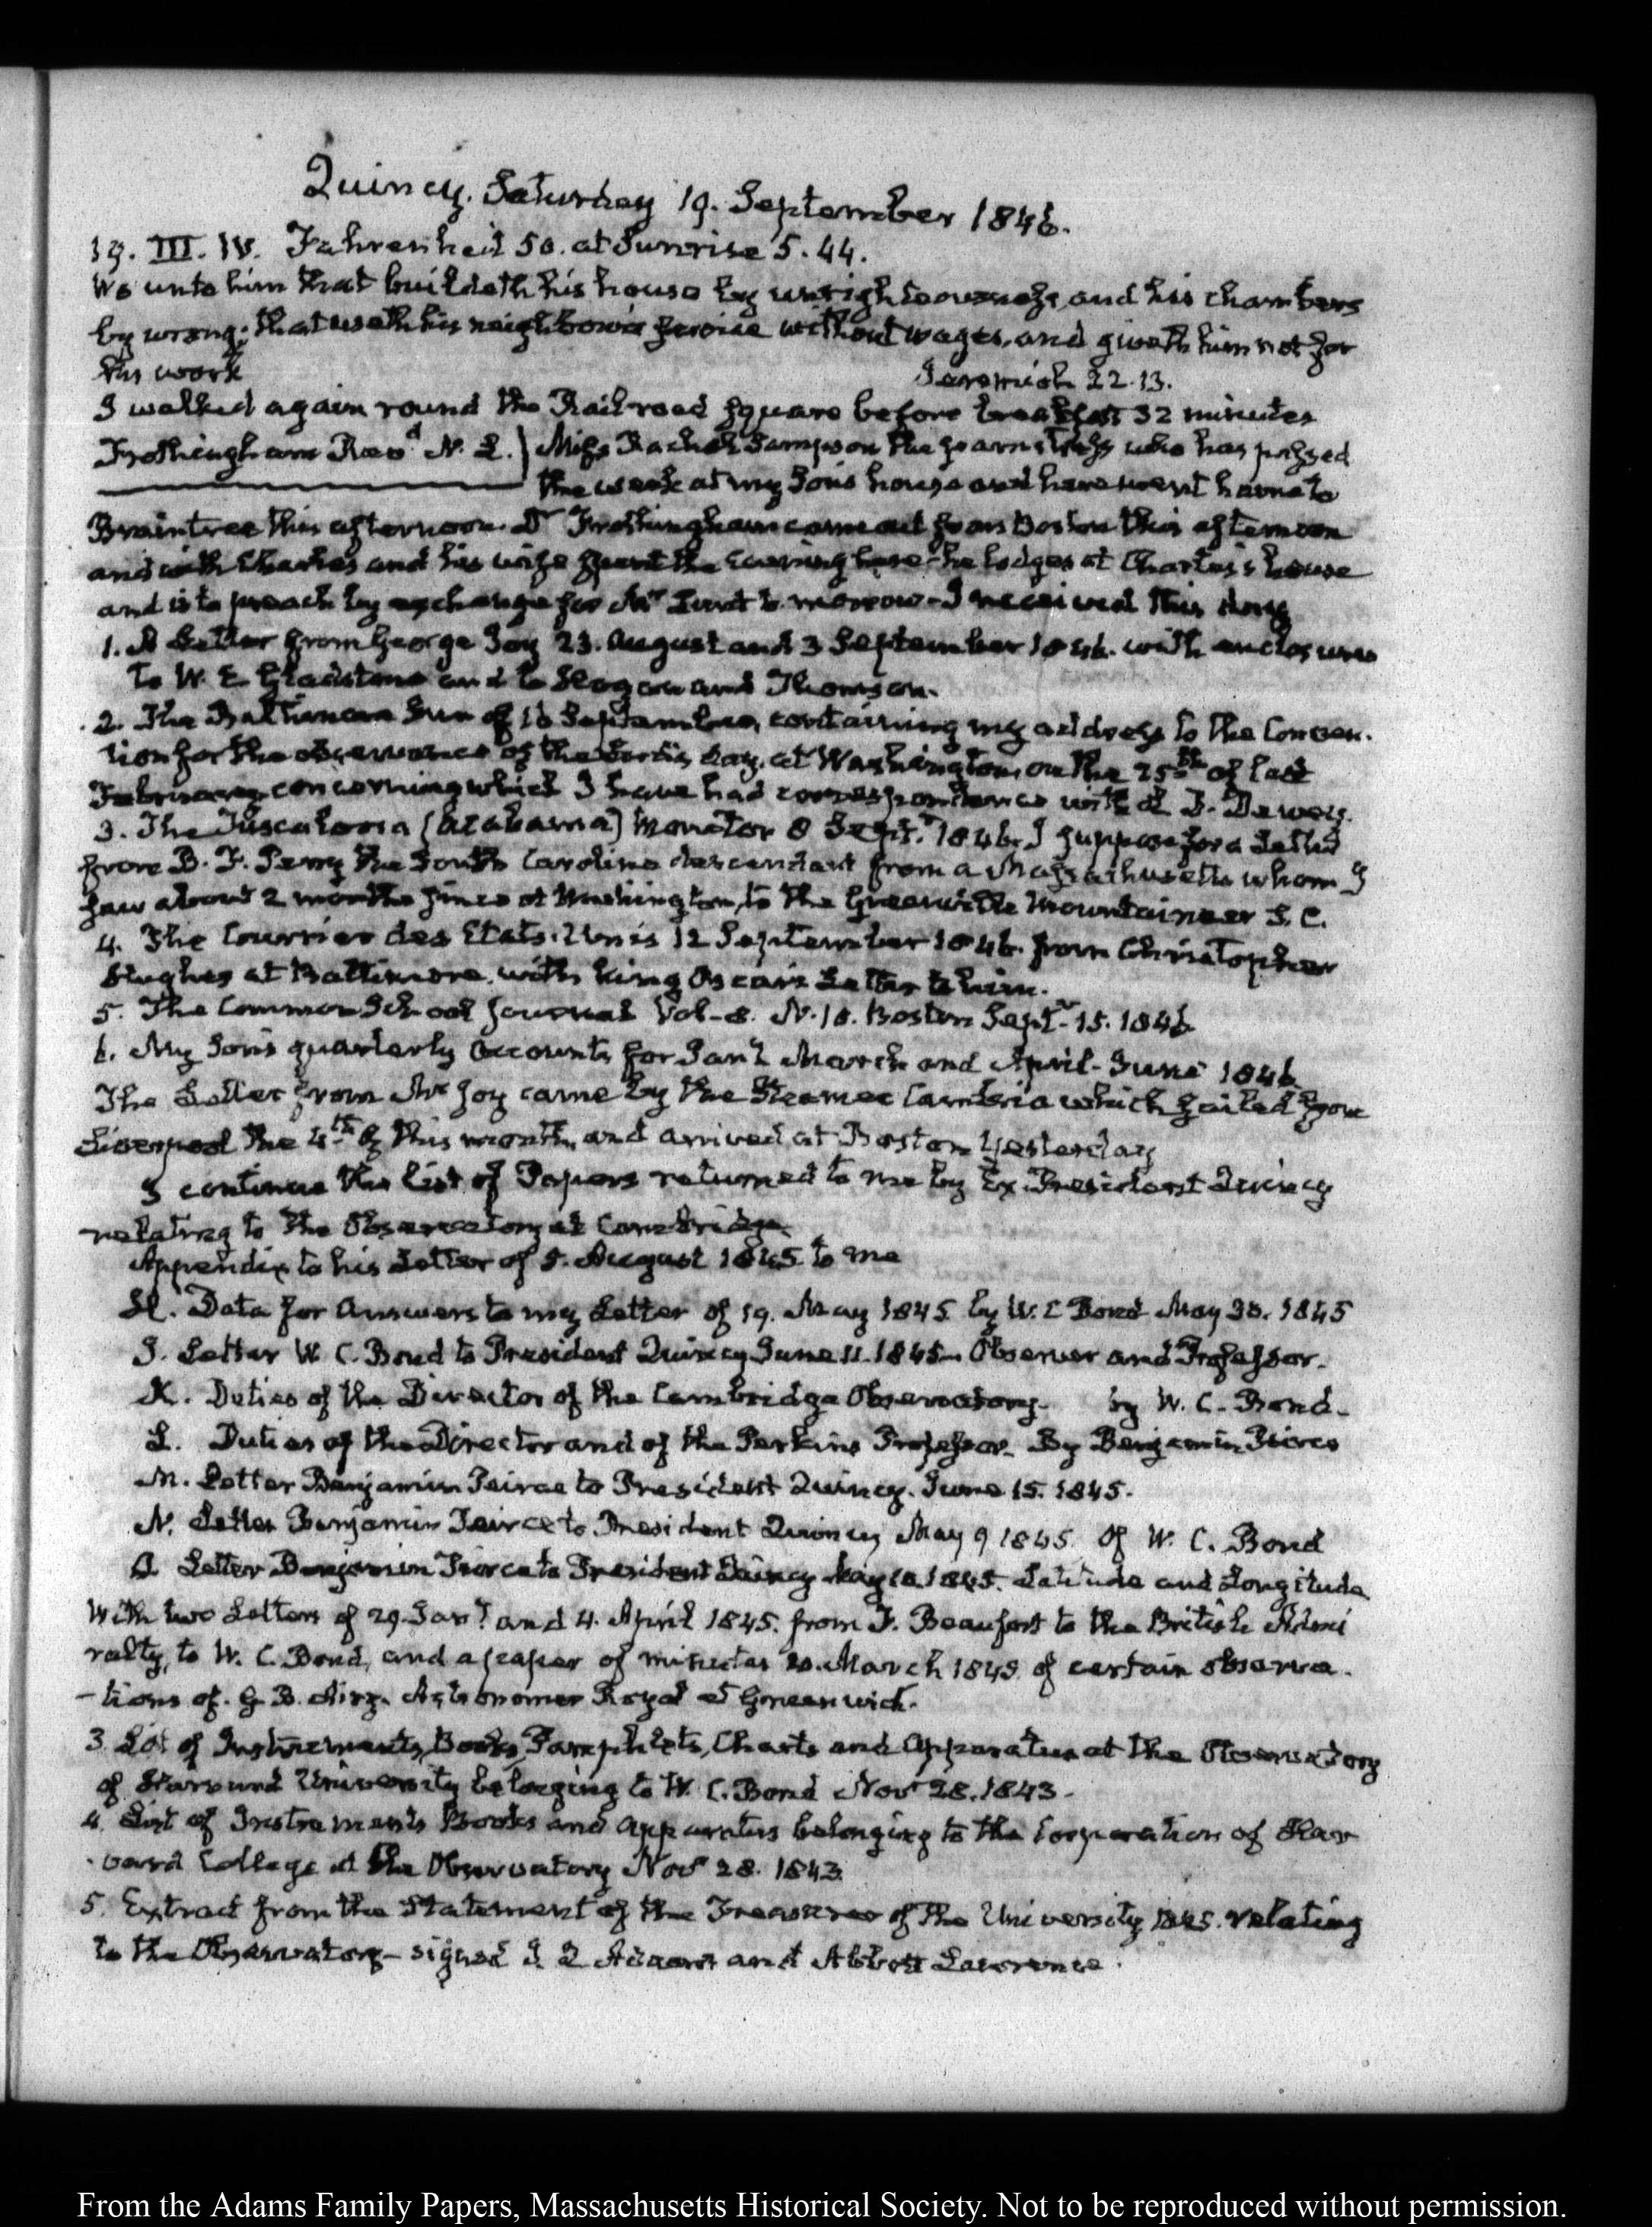 Quincy. Saturday 19. September 1846.
19. III. IV. Fahrenheit 50. at Sunrise 5.44.
Wo unto him that buildeth his house by unrighteousness, and his chambers
by wrong; that useth his neighbour's service without wages, and giveth him not for
his work
Jeremiah 22.13.
I walked again round the Rail-road square before breakfast 32 minutes
Frothingham Revd. N. L. Miss Rachel Sampson the seamstress who has passed
the week at my Son's house and here went home to
Braintree this afternoon. Dr Frothingham came out from Boston this afternoon
and with Charles and his wife spent the evening here—he lodges at Charles's house
and is to preach by exchange for Mr Lunt to-morrow—I received this day
1. A Letter from George Joy 23. August and 3 September 1846. with enclosures
to W. E. Gladstone and to and Thomson.
2. The Baltimore Sun of 16 September, containing my address to the Conven-
tion for the observance of the Lord's day, at Washington, on the 25th of last
February concerning which I have had correspondence with D. Dewey.
3. The Tuscaloosa (Alabama) Monitor 8 Septr. 1846. I suppose for a Letter
from B. F. Perry the South Carolina descendant from a Massachusetts whom I
saw about 2 months since at Washington, to the Greenville Mountaineer S. C.
4. The Courrier des Etats-Unis 12 September 1846. from Christopher
Hughes at Baltimore, with king Oscar's Letter to him.
5. The Common School Journal Vol-8. N. 18. Boston Septr. 15. 1846
6. My Son's quarterly accounts for Jany March and April-June 1846.
The Letter from Mr Joy came by the Steamer Cambria which sailed from
Liverpool the 4th of this month, and arrived at Boston Yesterday
I continue the list of Papers returned to me by Ex-President Quincy
relating to the Observatory at Cambridge
Appendix to his Letter of 5. August 1845 to me
H. Data for Answers to my Letter of 19. May 1845 by W. C Bond May 30. 1845
I. Letter W. C. Bond to President Quincy June 11. 1845—Observer and Professor.
K. Duties of the Director of the Cambridge Observatory— by W. C. Bond—
L. Duties of the Director and of the Perkins Professor. By Benjamin Peirce
M. Letter Benjamin Peirce to President Quincy. June 15. 1845.
N. Letter Benjamin Peirce to President Quincy May 9 1845. Of W. C. Bond
O. Letter Benjamin Peirce to President Quincy May 10. 1845. Latitude and Longitude
With two Letters of 29. Jany. and 4. April 1845. from F. Beaufort to the British Admi
ralty, to W. C. Bond, and a paper of minutes 20. March 1845. of certain observa-
-tions of G. B. Airy. Astronomer Royal at Greenwich.
3. List of Instruments, Books, Pamphlets, Charts and Apparatus at the Observatory
of Harvard University belonging to W. C. Bond Novr 28. 1843.
4. List of Instruments Books and Apparatus belonging to the Corporation of Har
-vard College at the Observatory Novr 28. 1843.
5. Extract from the Statement of the Treasurer of the University 1845. relating
to the Observatory—signed J. Q Adams and Abbott Lawrence.
From the Adams Family Papers, Massachusetts Historical Society. Not to be reproduced without permission.